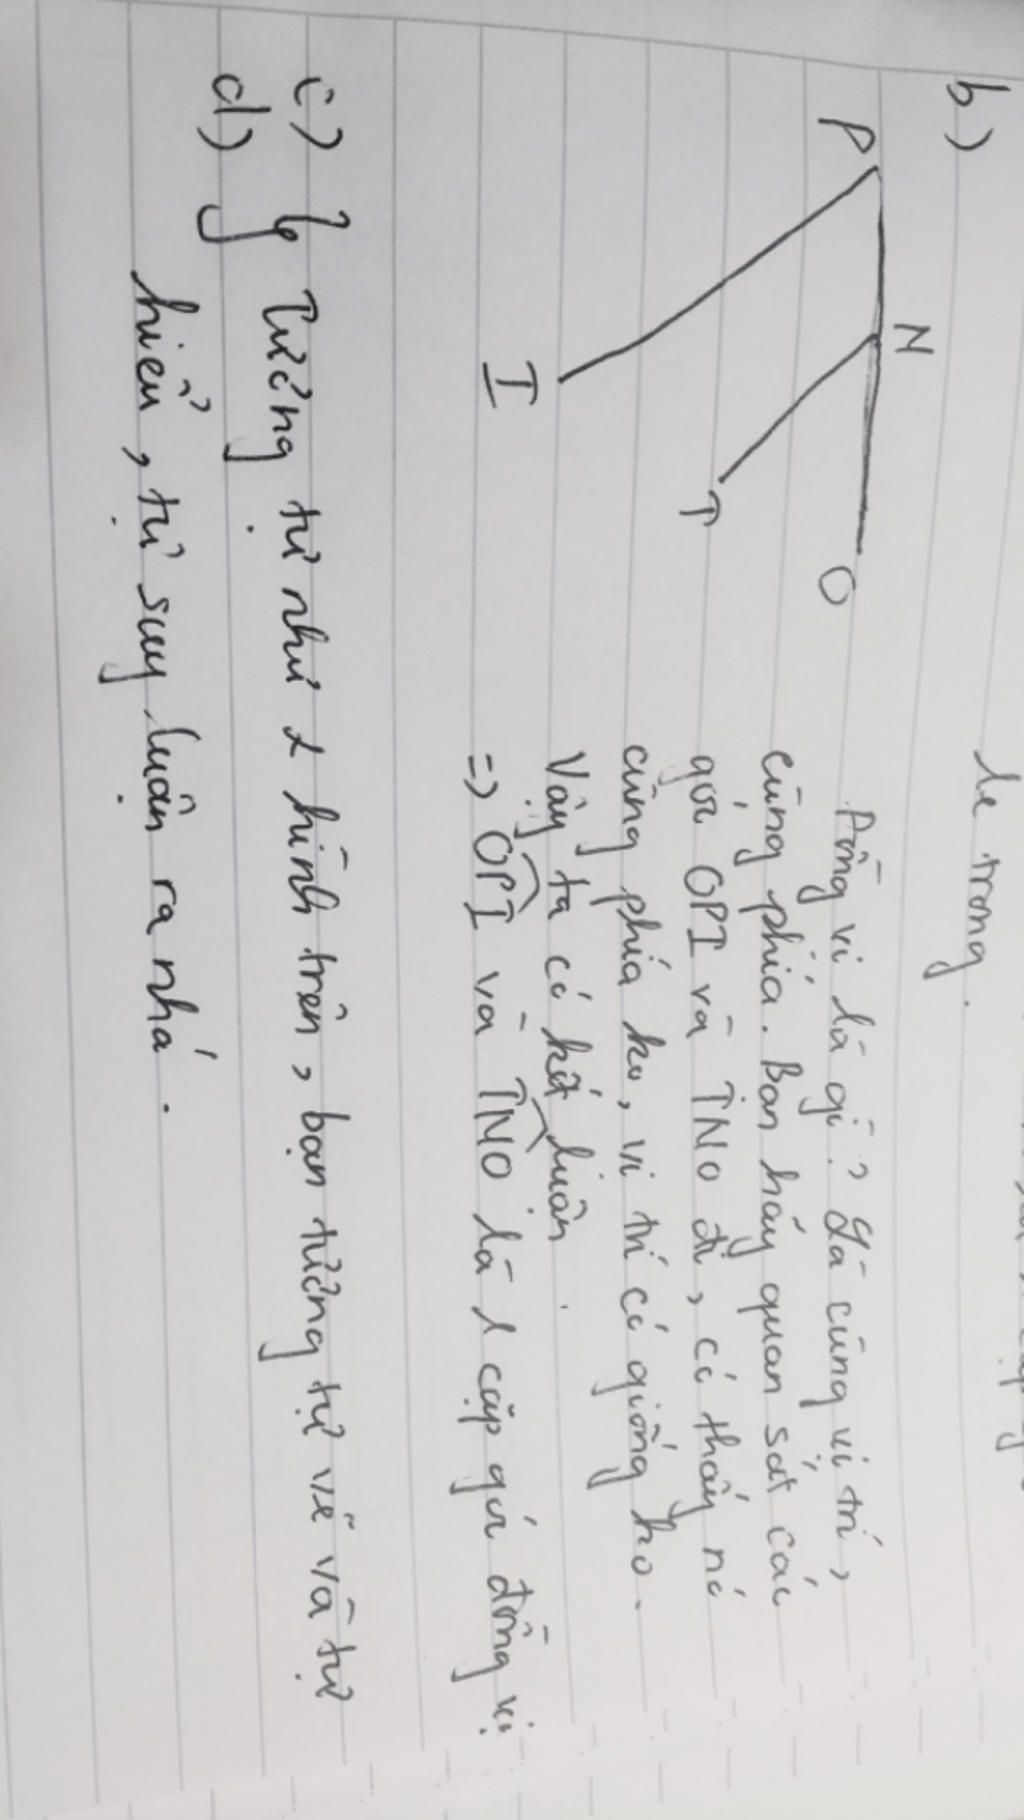 le trong.
b)
P
N
O
T
I
Đồng vị là gì? Là cùng vị trí,
cùng phía. Bạn hãy quan sát các
góc OPI và TNO đi, có thấy nó
cùng phía ko, vị trí có giống ko.
Vậy ta có kết luận
=> OPI và TNO là 1 cặp góc đồng vị
c)
d)
} Tương tự như 2 hình trên, bạn tương tự vẽ và tự
hiểu, tự suy luận ra nhá.